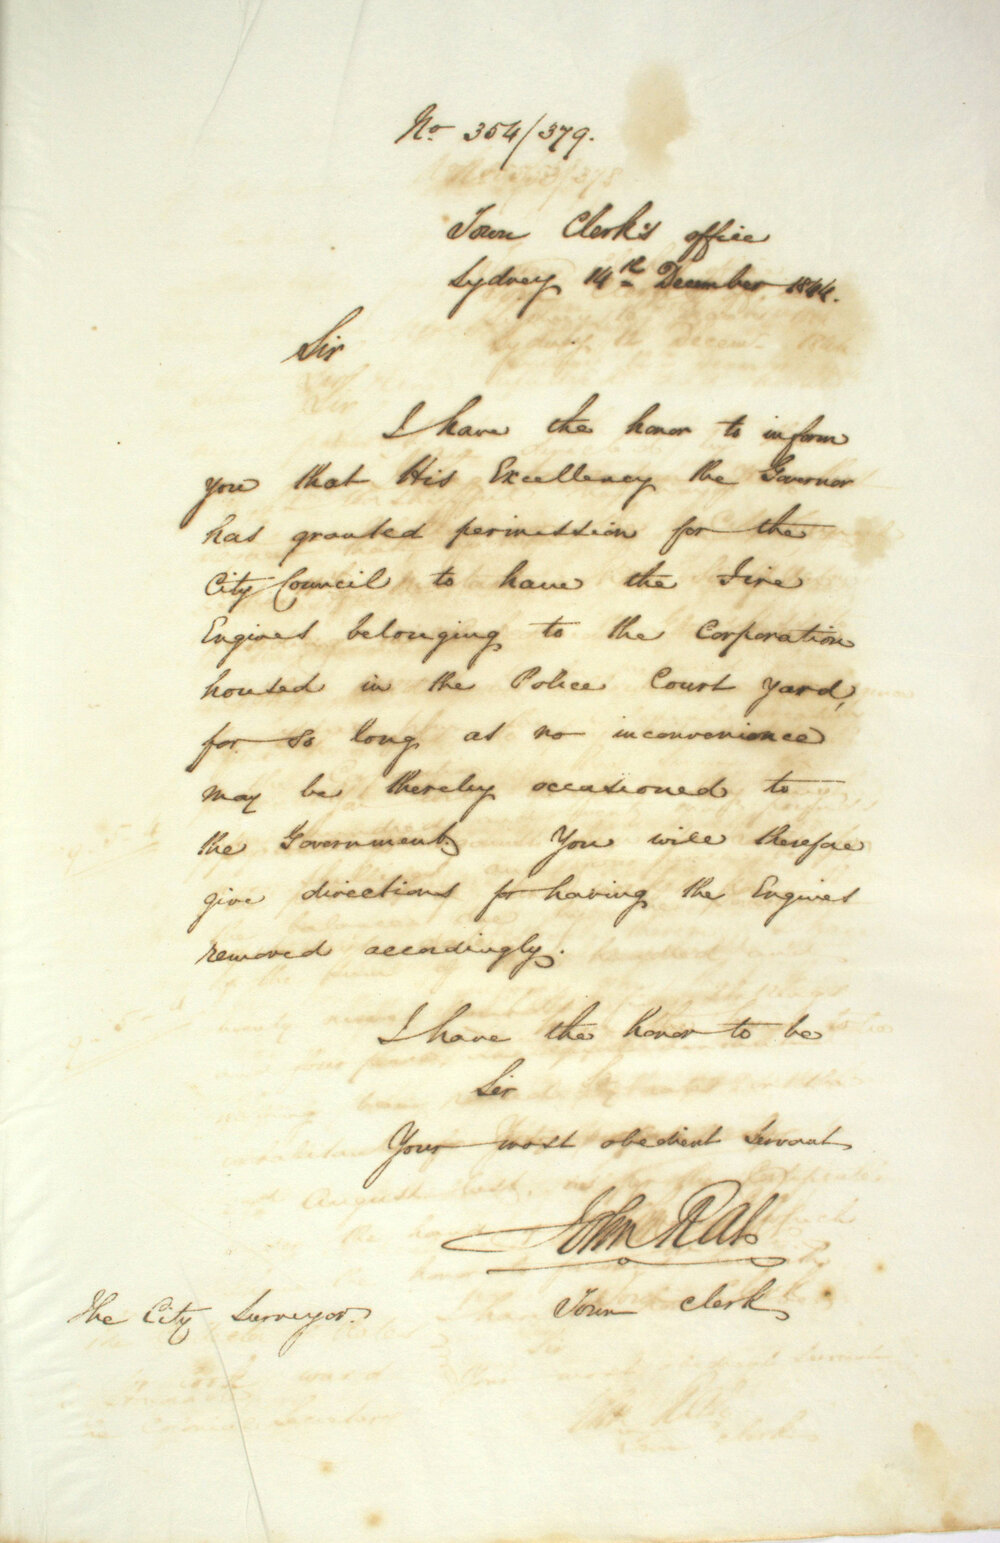 No 354/379.
Town Clerk's office
Sydney 14th December 1844.
Sir
I have the honor to inform
you that His Excellency the Governor
has granted permission for the
City Council to have the Fire
Engines belonging to the Corporation
housed in the Police Court yard,
for so long as no inconvenience
may be thereby occasioned to
the Government. You will therefore
give directions for having the Engines
removed accordingly.
I have the honor to be
Sir
Your most obedient Servant
John Rae
Town Clerk
The City Surveyor.